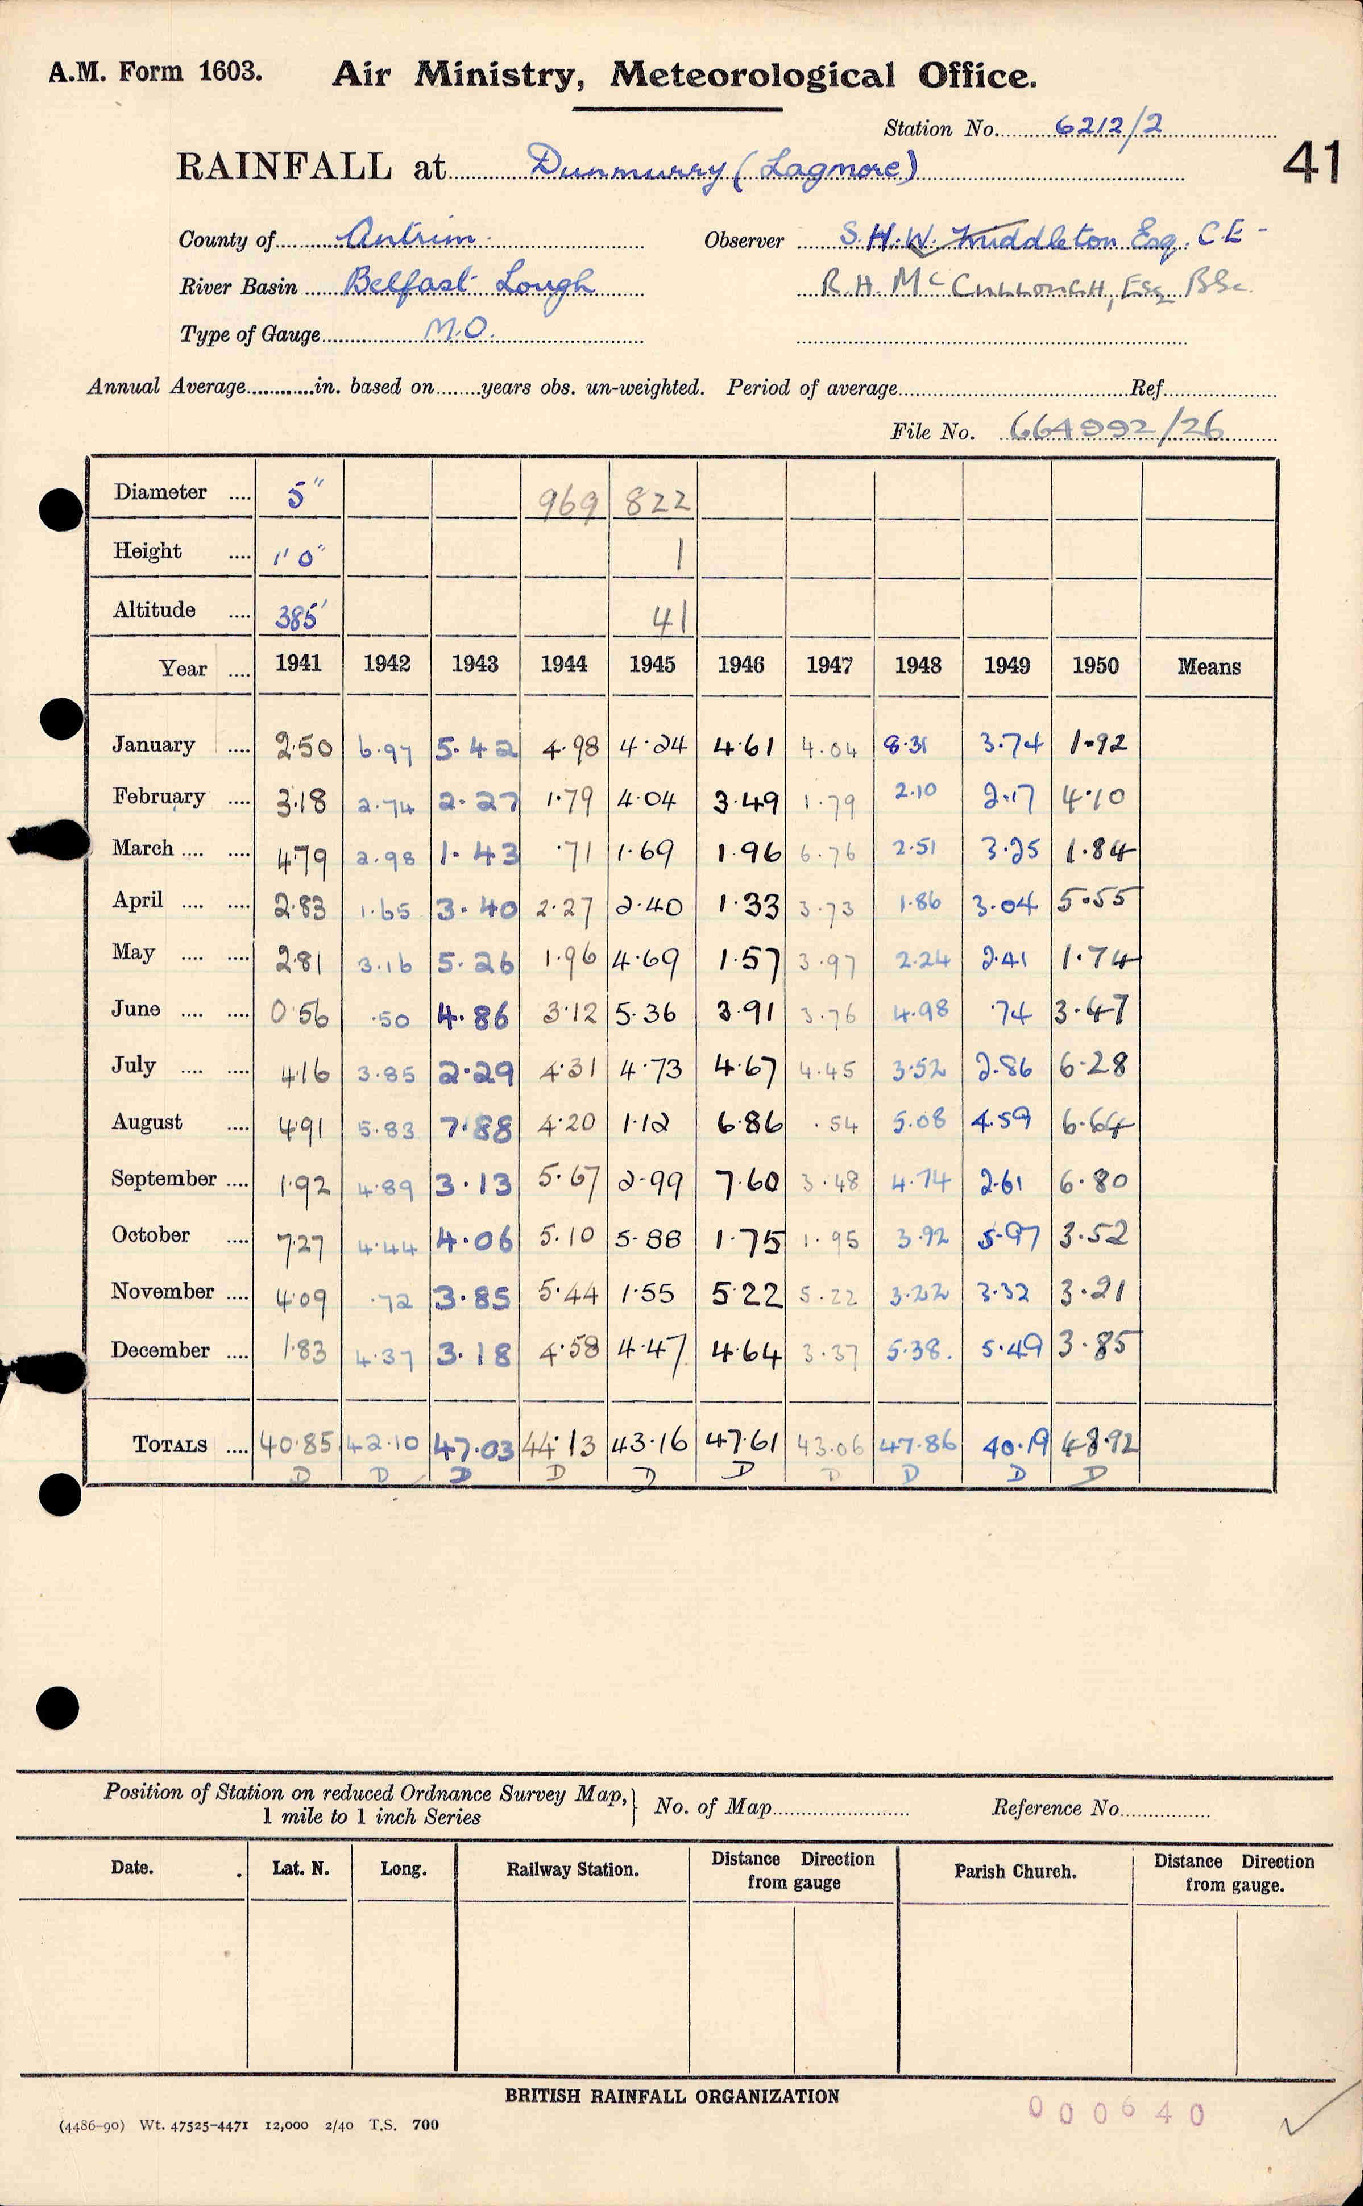 A.M. Form 1603. Air Ministry, Meteorological Office.
Station No. 6212/2
41
RAINFALL at Dunmurry (Lagmore)
County of Antrim. Observer S.H.W. Middleton Esq. C.E-
River Basin Belfast Lough R.H. McCULLOUGH, Esq BSc.
Type of Gauge M.O.
Annual Average............in. based on........years obs. un-weighted. Period of average.................................Ref..................
File No. 664992/26
Diameter .... 5" 969 822
Height .... 1'0" 1
Altitude .... 385' 41
Year .... 1941 1942 1943 1944 1945 1946 1947 1948 1949 1950 Means
January .... 2.50 6.97 5.42 4.98 4.24 4.61 4.04 8.31 3.74 1.92
February .... 3.18 2.74 2.27 1.79 4.04 3.49 1.79 2.10 2.17 4.10
March .... .... 4.79 2.98 1.43 .71 1.69 1.96 6.76 2.51 3.25 1.84
April .... .... 2.83 1.65 3.40 2.27 2.40 1.33 3.73 1.86 3.04 5.55
May .... .... 2.81 3.16 5.26 1.96 4.69 1.57 3.97 2.24 2.41 1.74
June .... .... 0.56 .50 4.86 3.12 5.36 3.91 3.76 4.98 .74 3.47
July .... .... 4.16 3.85 2.29 4.31 4.73 4.67 4.45 3.52 2.86 6.28
August .... 4.91 5.83 7.88 4.20 1.12 6.86 .54 5.08 4.59 6.64
September .... 1.92 4.89 3.13 5.67 2.99 7.60 3.48 4.74 2.61 6.80
October .... 7.27 4.44 4.06 5.10 5.88 1.75 1.95 3.92 5.97 3.52
November .... 4.09 .72 3.85 5.44 1.55 5.22 5.22 3.22 3.32 3.21
December .... 1.83 4.37 3.18 4.58 4.47 4.64 3.37 5.38. 5.49 3.85
TOTALS .... 40.85 42.10 47.03 44.13 43.16 47.61 43.06 47.86 40.19 48.92
D D D D D D D D D D
Position of Station on reduced Ordnance Survey Map,} No. of Map........................ Reference No................
1 mile to 1 inch Series
Date. Lat. N. Long. Railway Station. Distance Direction from gauge Parish Church. Distance Direction from gauge.
BRITISH RAINFALL ORGANIZATION
000640
(4486-90) Wt. 47525-4471 12,000 2/40 T.S. 700